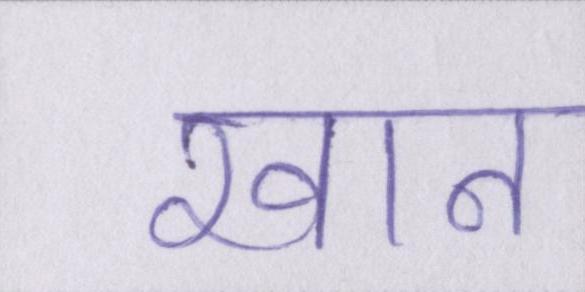 खान